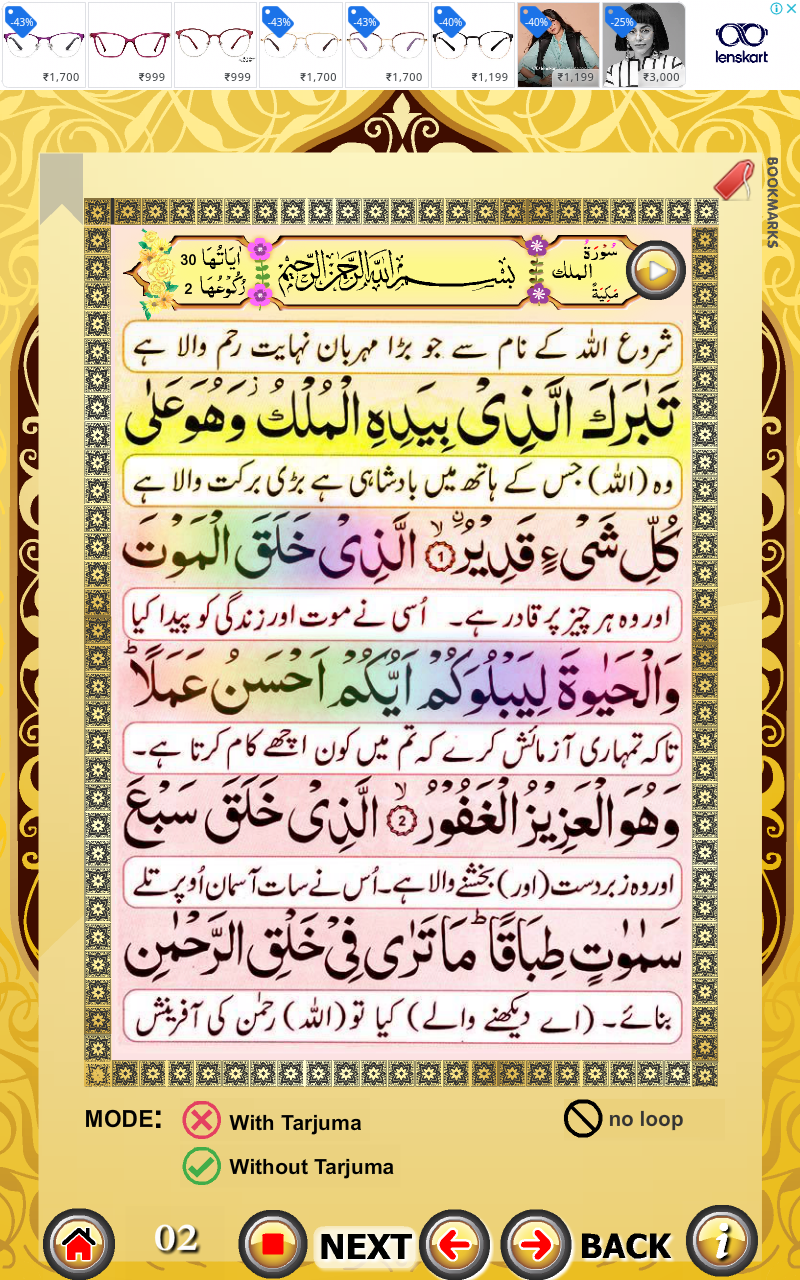 -43% -43% -43% -40% -40% -25%
₹1,700 ₹999 ₹999 ₹1,700 ₹1,700 ₹1,199 ₹1,199 ₹3,000
lenskart
BOOKMARKS
سُوْرَةُ الملك مَكِيَّةٌ
بسم الله الرحمن الرحيم
اٰيَاتُهَا 30
رُكُوْعُهَا 2
شروع اللہ کے نام سے جو بڑا مہربان نہایت رحم والا ہے
تَبٰرَكَ الَّذِیْ بِیَدِهِ الْمُلْكُ ؗ وَهُوَ عَلٰی
وہ (اللہ) جس کے ہاتھ میں بادشاہی ہے بڑی برکت والا ہے
كُلِّ شَیْءٍ قَدِیْرُ ۙ 1 الَّذِیْ خَلَقَ الْمَوْتَ
اور وہ ہر چیز پر قادر ہے۔ اُسی نے موت اور زندگی کو پیدا کیا
وَالْحَیٰوةَ لِیَبْلُوَكُمْ اَیُّكُمْ اَحْسَنُ عَمَلًا ؕ
تاکہ تمہاری آزمائش کرے کہ تم میں کون اچھے کام کرتا ہے۔
وَهُوَ الْعَزِیْزُ الْغَفُوْرُ ۙ 2 الَّذِیْ خَلَقَ سَبْعَ
اور وہ زبردست (اور) بخشنے والا ہے۔ اُس نے سات آسمان اُوپر تلے
سَمٰوٰتٍ طِبَاقًا ؕ مَا تَرٰی فِیْ خَلْقِ الرَّحْمٰنِ
بنائے۔ (اے دیکھنے والے) کیا تو (اللہ) رحمٰن کی آفرینش
MODE: With Tarjuma
no loop
Without Tarjuma
02 NEXT BACK i